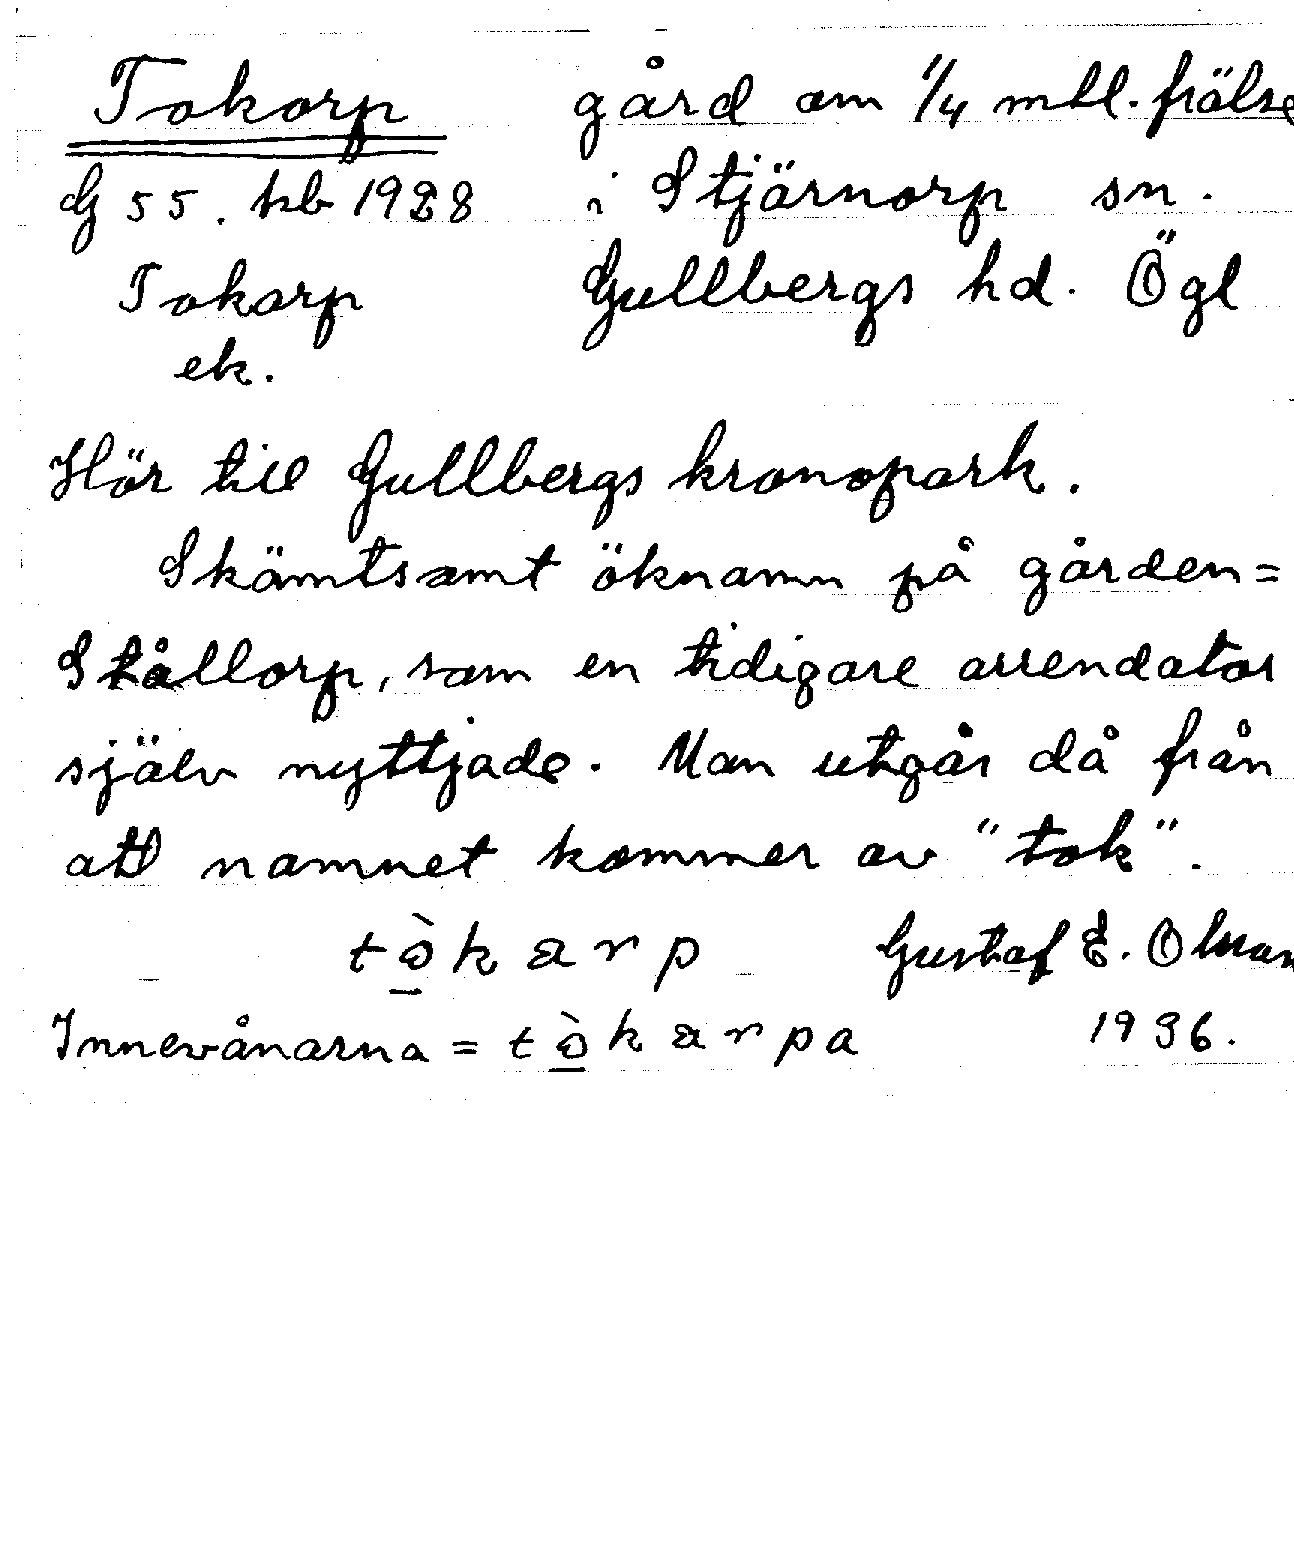 Tokorp gård om 1/4 mtl. frälse
G 55. kb 1928 i Stjärnorp sn.
Tokarp Gullbergs hd. Ögl
ek.
Hör till Gullbergs kronopark.
Skämtsamt öknamn på gården =
Stållorp, som en tidigare arrendator
själv nyttjade. Man utgår då från
att namnet kommer av "tok".
tò̠karp Gustaf E.
Innevånarna = tò̠karpa 1936.